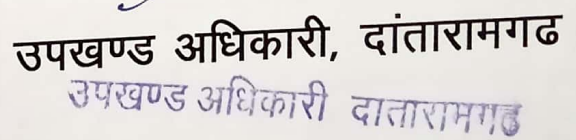 उपखण्ड अधिकारी, दांतारामगढ
उपखण्ड अधिकारी दातारामगढ